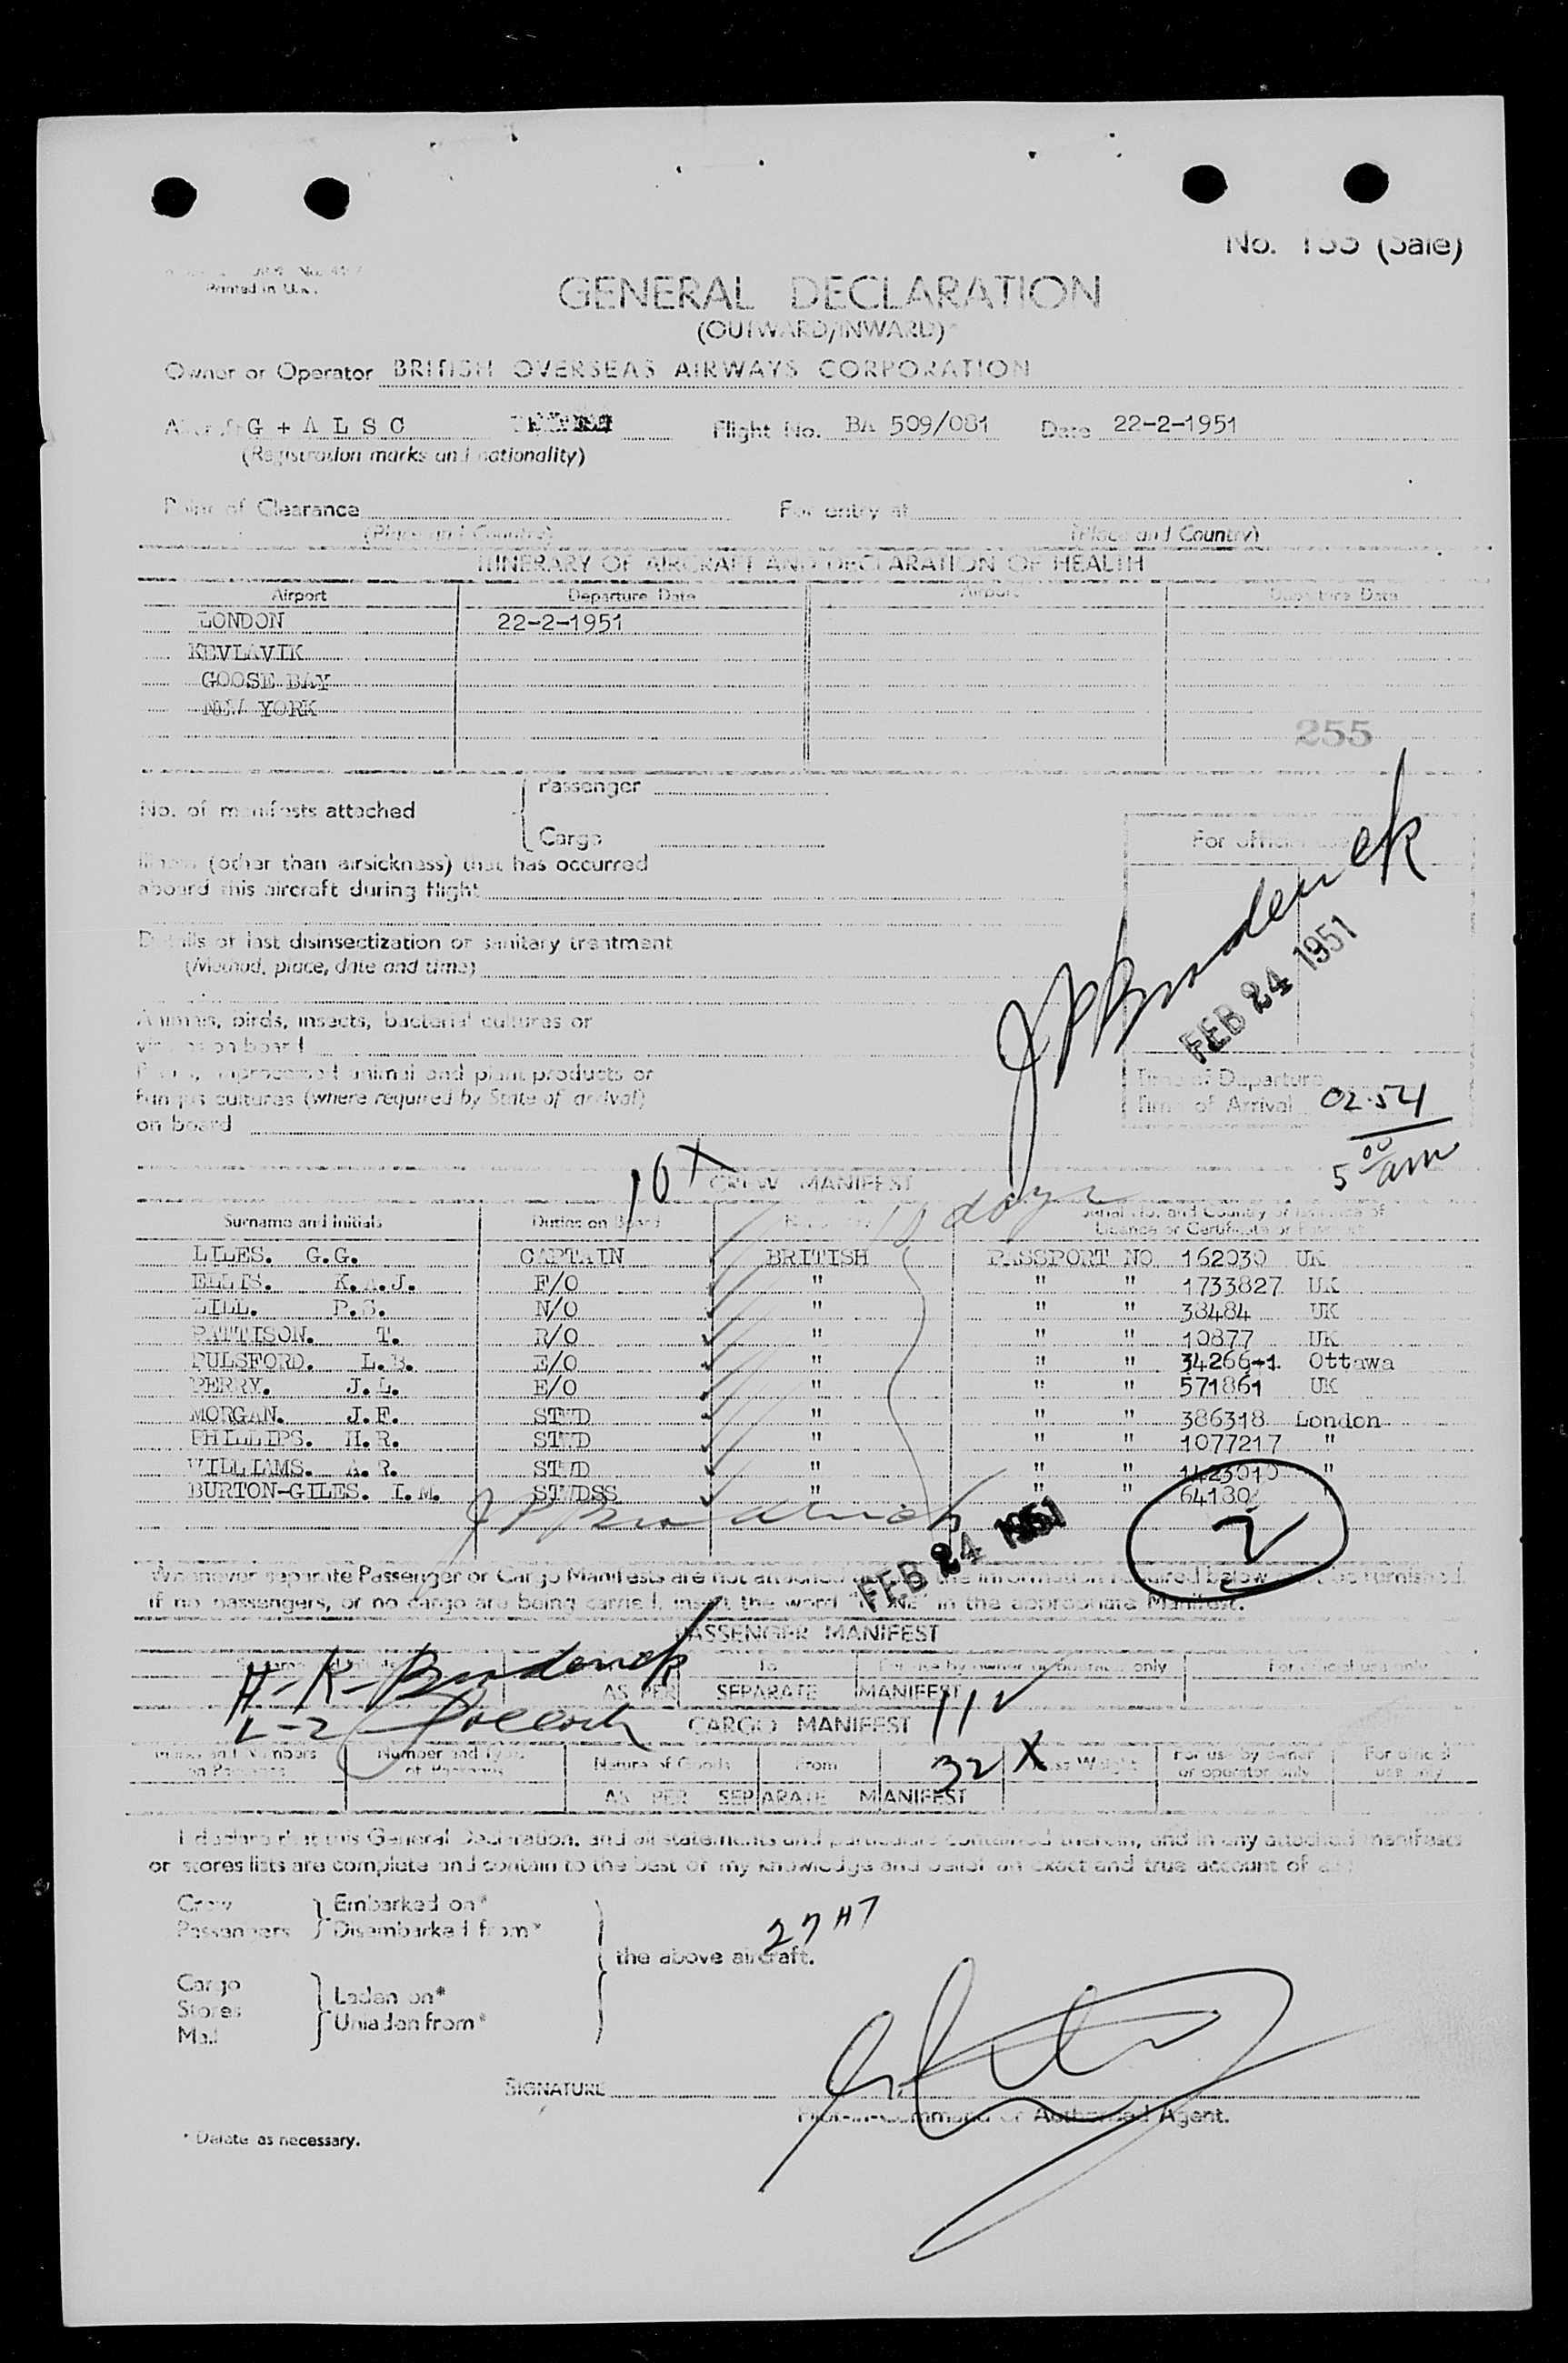 No. 155 (Sale)
Printed in U.K.
GENERAL DECLARATION
(OUTWARD/INWARD)*
Owner or Operator BRITISH OVERSEAS AIRWAYS CORPORATION
Aircraft G + A L S C Flight No. BA 509/081 Date 22-2-1951
(Registration marks and nationality)
Point of Clearance For entry at
(Place and Country) (Place and Country)
ITINERARY OF AIRCRAFT AND DECLARATION OF HEALTH
Airport Departure Date Airport Departure Date
LONDON 22-2-1951
KEVLAVIK
GOOSE BAY
NEW YORK
255
No. of manifests attached { Passenger
Cargo
Illness (other than airsickness) that has occurred
aboard this aircraft during flight
For official use
Details of last disinsectization or sanitary treatment
(Method, place, date and time)
FEB 24 1951
Animals, birds, insects, bacterial cultures or
viruses on board
Plants, unprocessed animal and plant products or
fungus cultures (where required by State of arrival)
on board
Time of Departure
Time of Arrival 02.54
5 00 am
10 X
CREW MANIFEST
days
Surname and Initials Duties on Board Nationality Serial No. and Country of Issuance of
Licence or Certificate or Passport
LILES. G.G. CAPTAIN BRITISH PASSPORT NO 162030 UK
ELLIS. K.A.J. F/O " " " 1733827 UK
LILL. P.S. N/O " " " 38484 UK
PATTISON. T. R/O " " " 10877 UK
PULSFORD. L.B. E/O " " " 34266-1 Ottawa
PERRY. J.L. E/O " " " 571861 UK
MORGAN. J.F. STWD " " " 386318 London
PHILLIPS. H.R. STWD " " " 1077217 "
WILLIAMS. A.R. STWD " " " 1423010 "
BURTON-GILES. I.M. STWDSS " " " 64130 "
2
FEB 24 1951
Whenever separate Passenger or Cargo Manifests are not attached the information required below must be furnished.
If no passengers, or no cargo are being carried, insert the word "NONE" in the appropriate Manifest.
PASSENGER MANIFEST
To For use by owner or operator only For official use only
AS PER SEPARATE MANIFEST
11
CARGO MANIFEST
Marks and Numbers on Packages Number and Type of Packages Nature of Goods From Gross Weight For use by owner or operator only For official use only
32 X
AS PER SEPARATE MANIFEST
I declare that this General Declaration, and all statements and particulars contained therein, and in any attached manifests
or stores lists are complete and contain to the best of my knowledge and belief an exact and true account of all
Crew } Embarked on*
Passengers } Disembarked from*
27 H7
the above aircraft.
Cargo
Stores } Laden on*
Mail } Unladen from*
SIGNATURE
Pilot-in-Command or Authorised Agent.
* Delete as necessary.